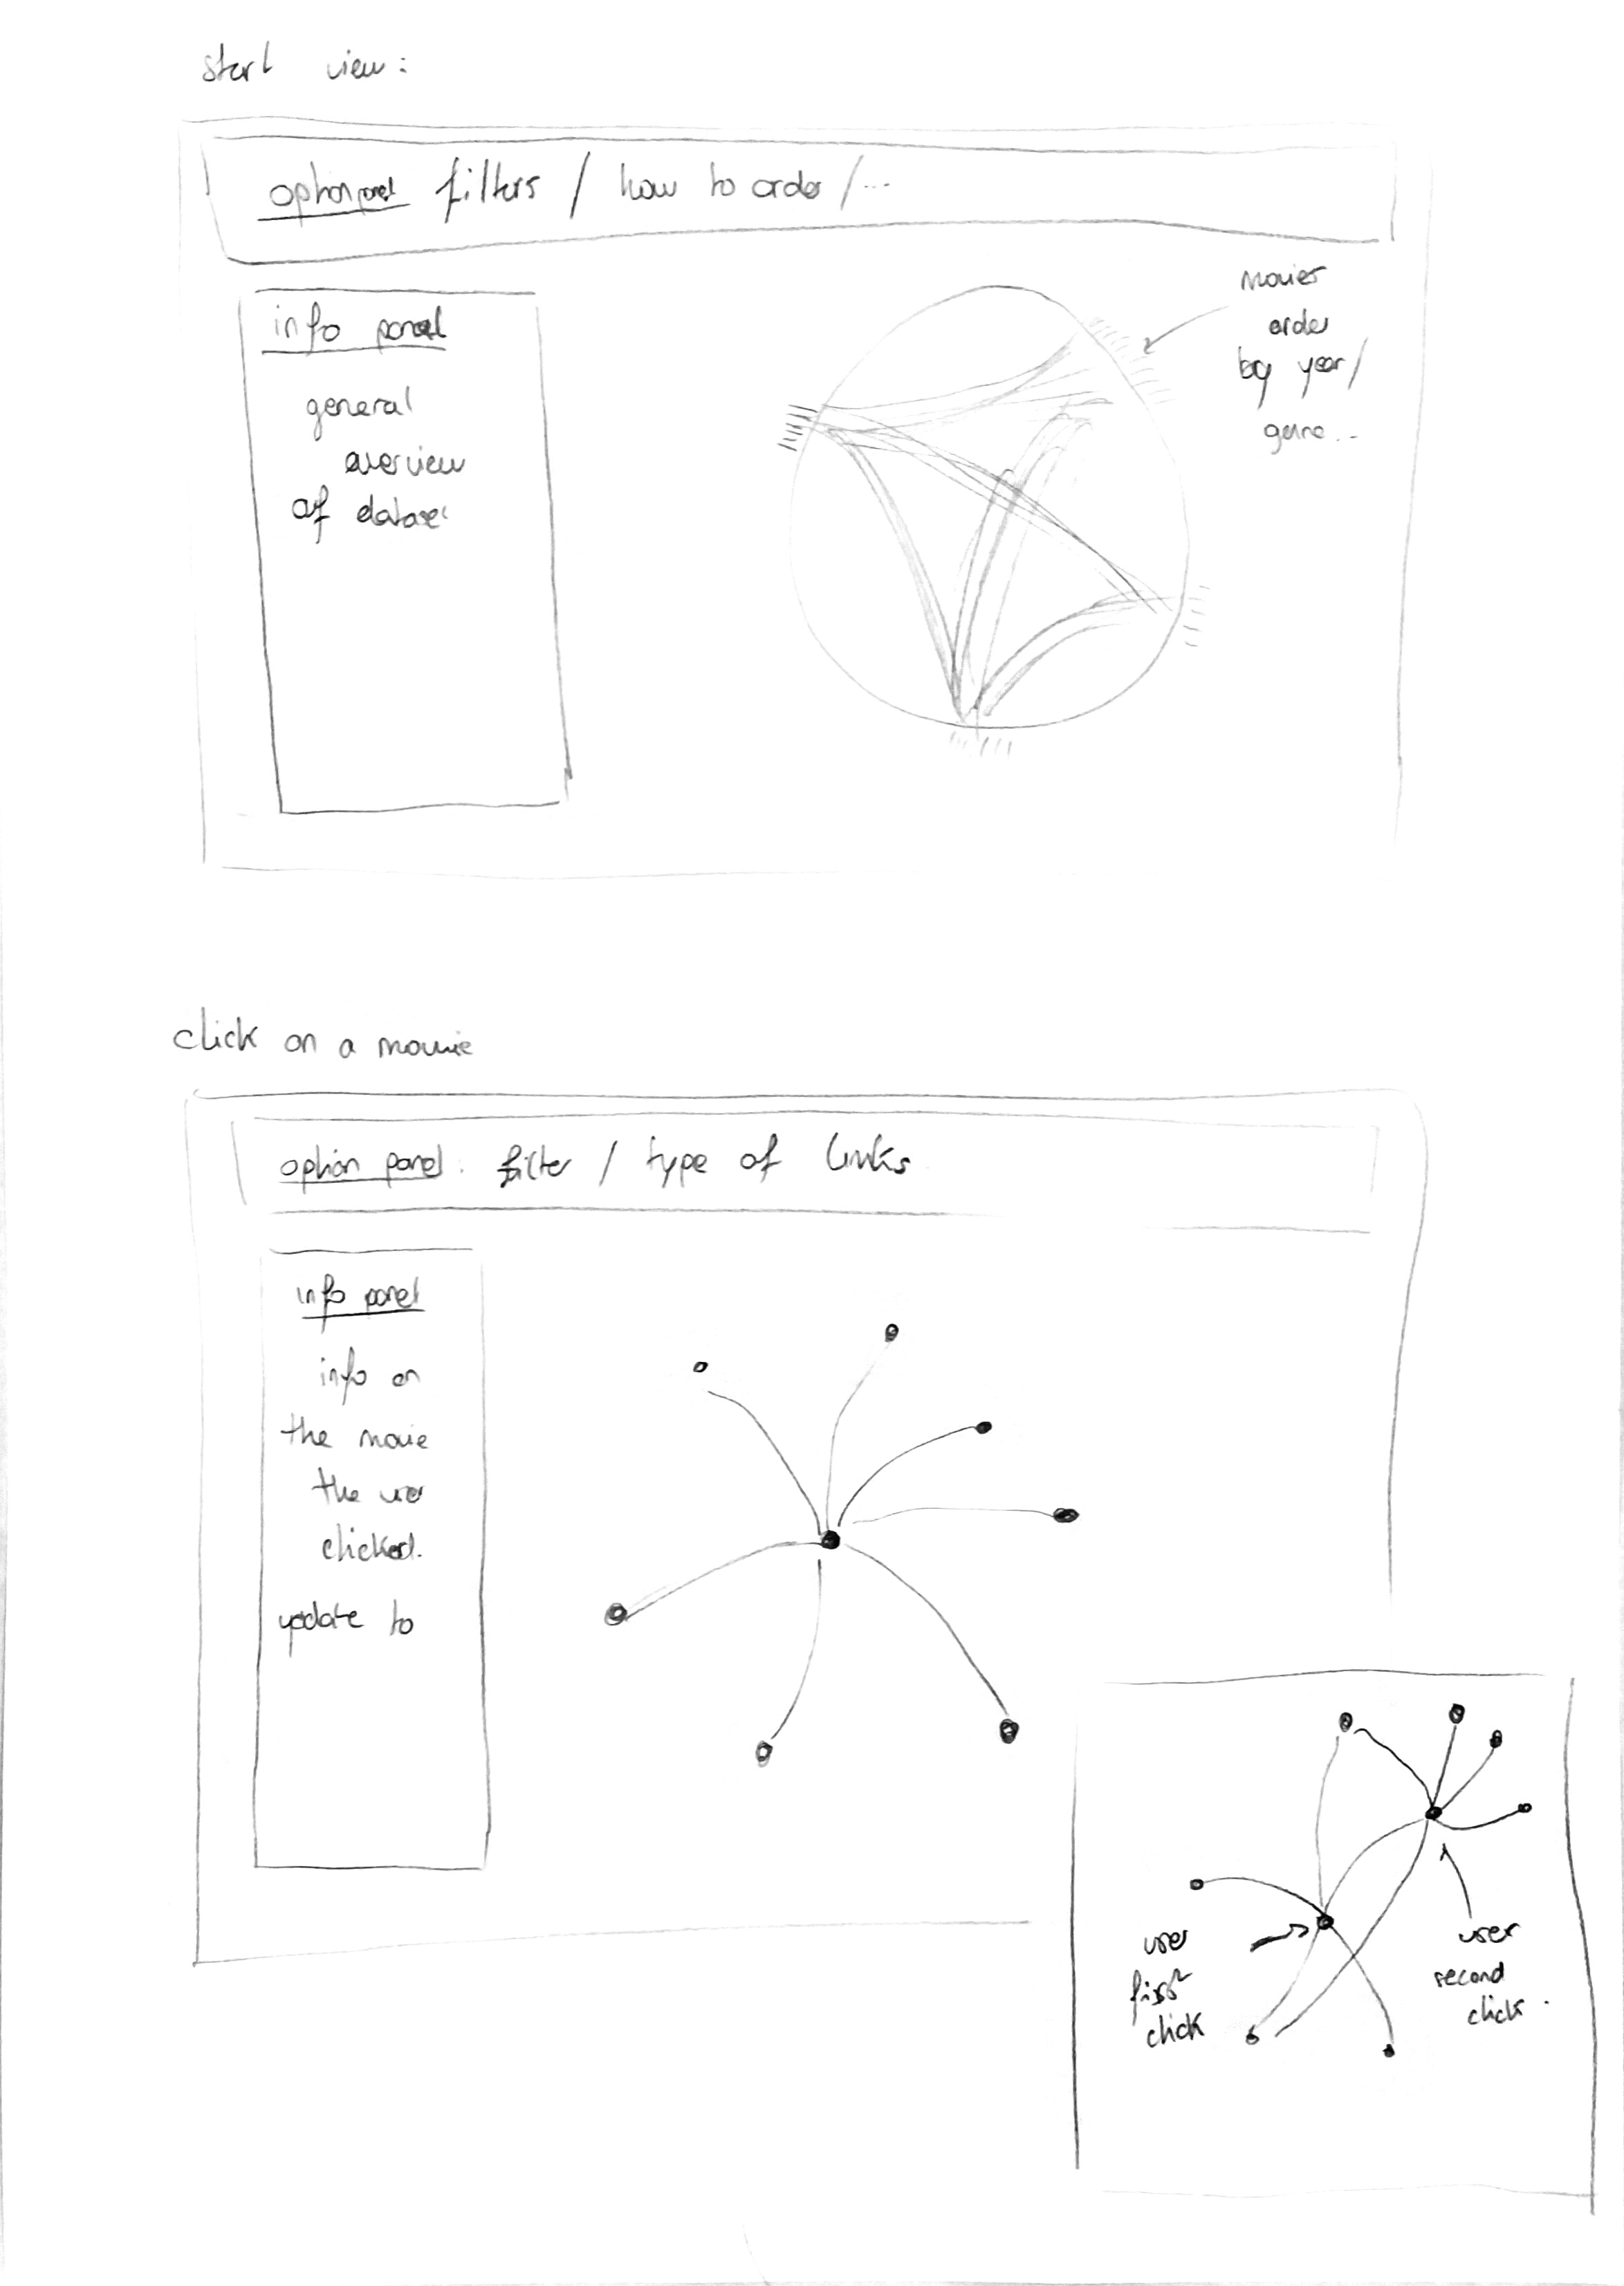 start view:
option panel filters / how to order / ...
info panel
general
overview
of dataset
movies
order
by year/
genre...
click on a movie
option panel: filter / type of links
info panel
info on
the movie
the user
clicked.
update to
user
first
click
user
second
click.